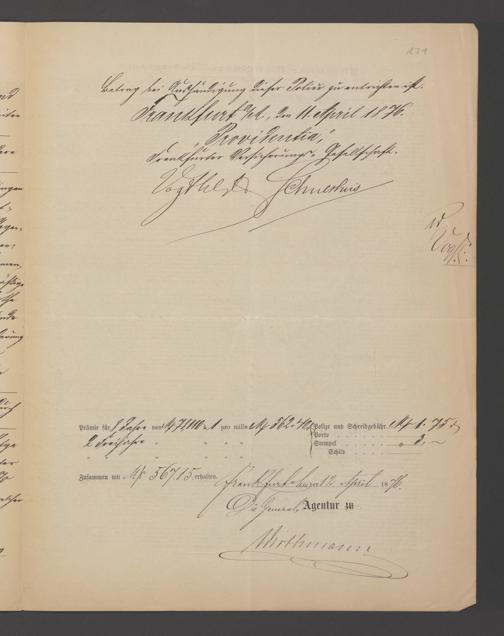 131
Betrag bei Aushändigung dieser Police zu entrichten ist.
Frankfurt a/M., den 11 April 1876.
"Providentia,"
Frankfurter Versicherungs-Gesellschaft.
Prämie für 8 Jahre von M 72110 a 1 pro mille M 562.40 Polize und Schreibgebühr. M 1.75
2 Freijahre " " " Porto
Stempel " 3. —
" " " " Schild
Zusammen mit M 567.15 erhalten. Frankfurt a. 12 April 1876.
Die General Agentur zu
Wirthmann